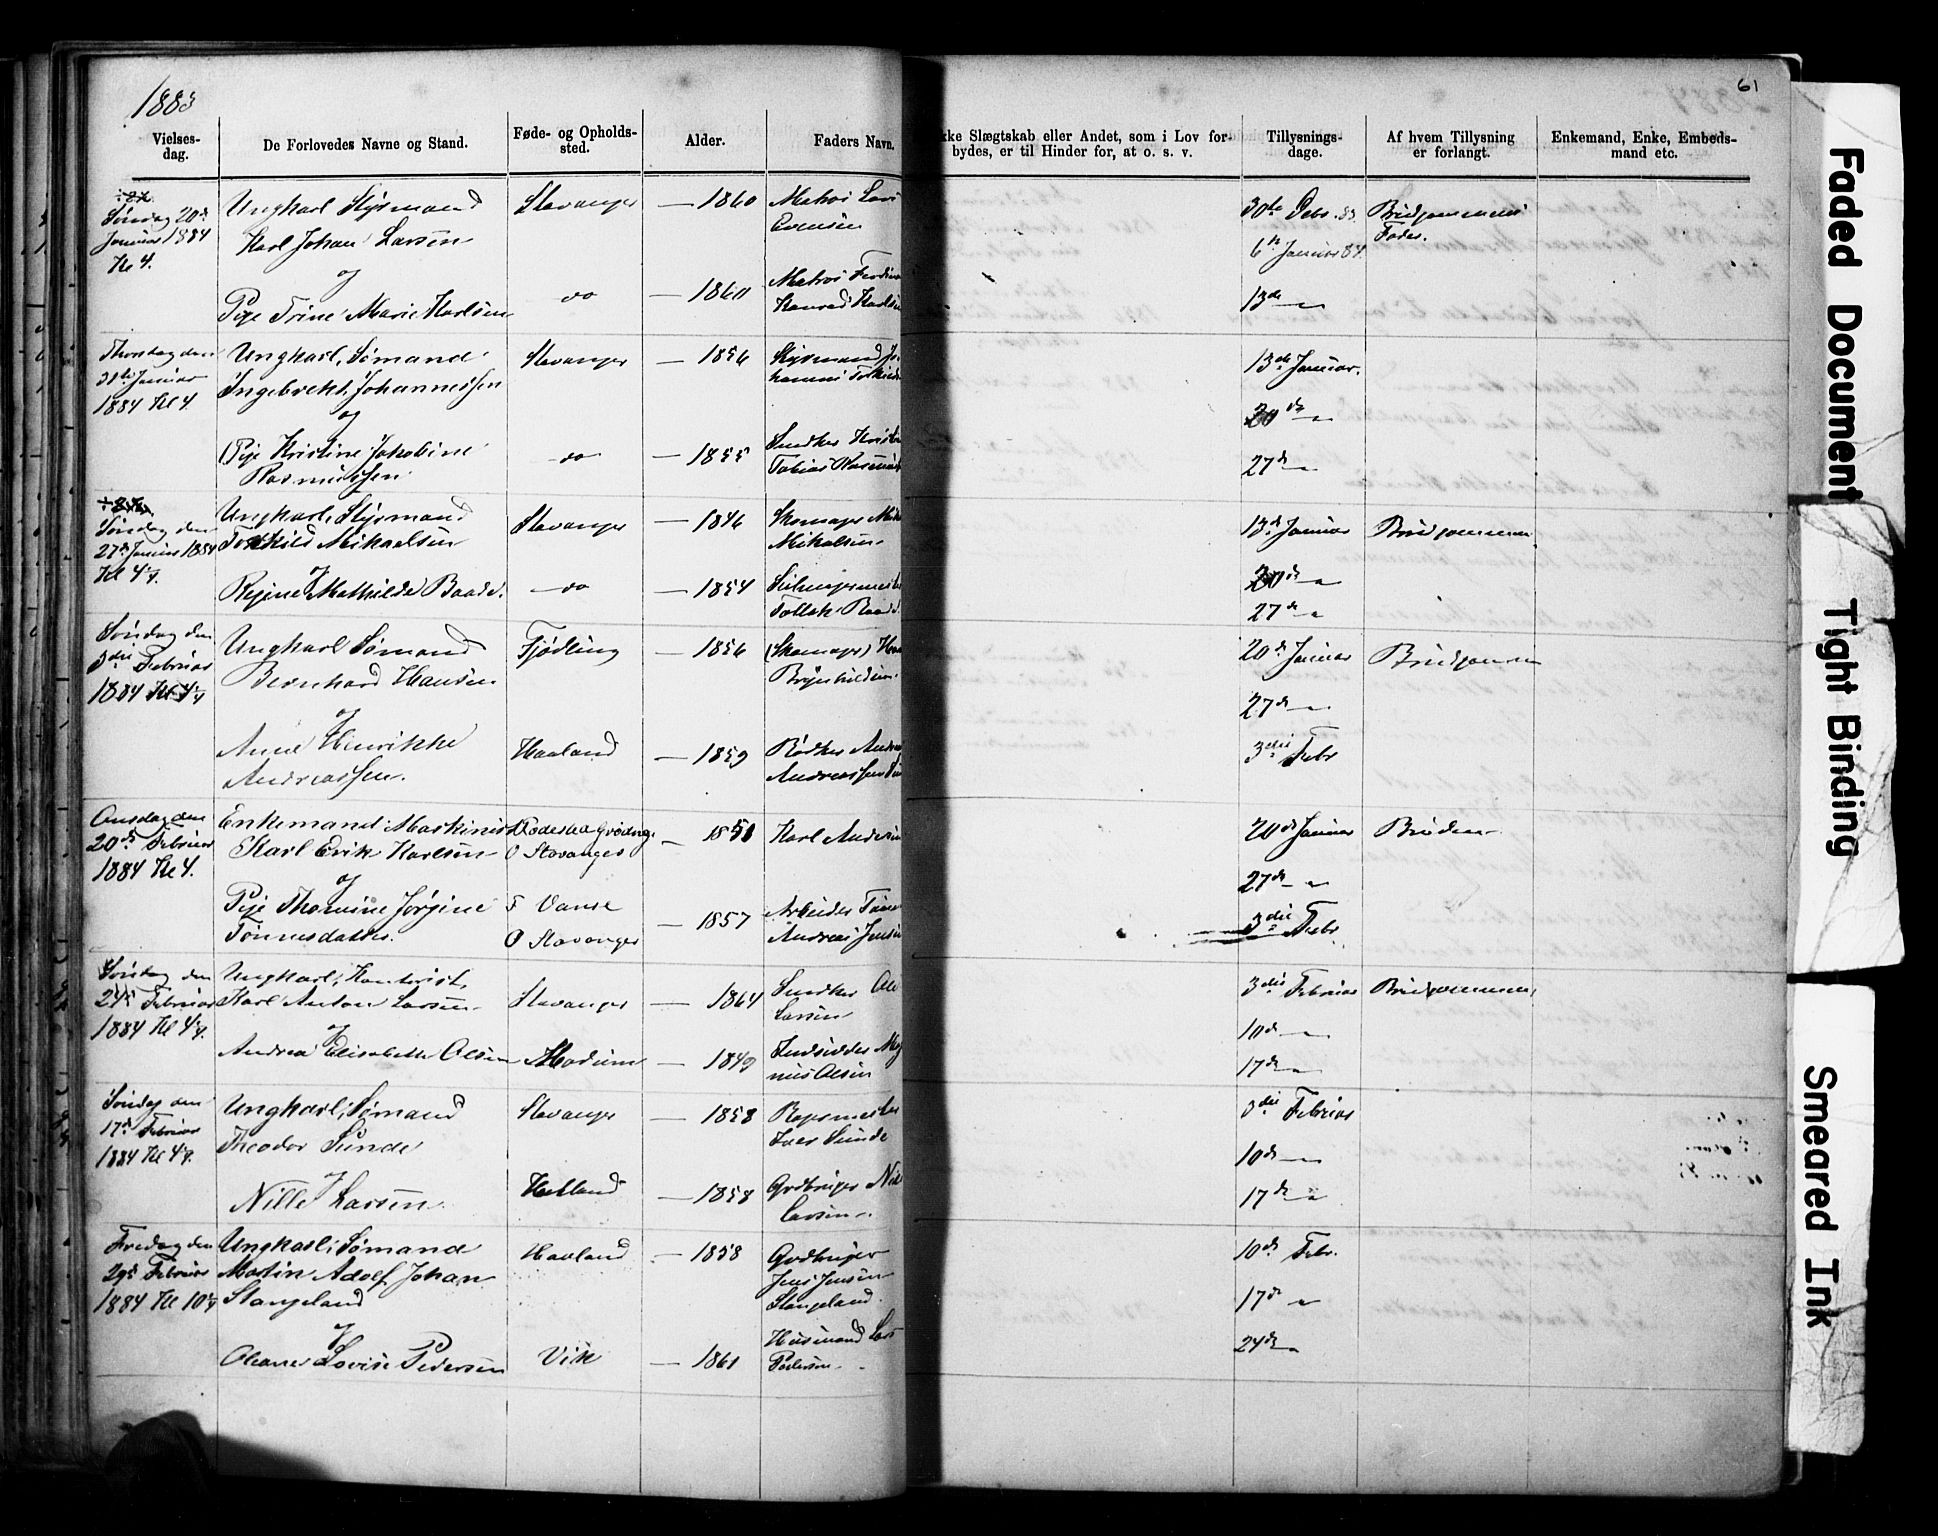 1883
61
Vielses-
dag.
De Forlovedes Navne og Stand.
Føde- og Opholds-
sted.
Alder.
Faders Navn.
kke Slægtskab eller Andet, som i Lov for-
bydes, er til Hinder for, at o. s. v.
Tillysnings-
dage.
Af hvem Tillysning
er forlangt.
Enkemand, Enke, Embeds-
mand etc.
Søndag 20de
Januar 1884
Kl 4.
Ungkarl Styrmand
Karl Johan Larsen
og
Pige Trine Marie Karlsen
Stavanger
do
— 1860
— 1860
Matros Lars
Evensen
Matros Ferdina
Konrad Karlsen
30te Debr. 83.
6te Januar 84.
13de —"—
Brudgommens
Fader.
Thorsdag den
31te Januar
1884 Kl 4.
Ungkarl, Sømand
Ingebrekt Johannessen
og
Pige Kristine Jakobine
Rasmussen
Stavanger
— do
— 1856
— 1855
Styrmand Jo-
hannes
Snedker Krist
Tobias Rasmuss
13de Januar.
20de —"—
27de —"—
Søndag den
27de Januar 1884
Kl 4½.
Ungkarl, Styrmand
Torkild Mikaelsen
og
Regine Mathilde Baade.
Stavanger
— do
— 1846
— 1854
Skomager Mik
Mikalsen
Tollak Baade
13de Januar
20de —"—
27de —"—
Brudgommen.
Søndag den
3die Februar
1884 Kl 4½
Ungkarl Sømand
Bernhard Hansen
og
Anne Henrikke
Andreassen.
Fjødling
Haaland
— 1856
— 1859
(Skomager) Han
Brynhildsen
Bødker Andrea
Andreassen
20de Januar
27de —"—
3die Febr
Brudgommen
Onsdag den
20de Februar
1884 Kl 4.
Enkemand Maskinist
Karl Erik Karlsen
og
Pige Thomine Jørgine
Tønnesdatter.
O Stavanger
F Vanse
O Stavanger
— 1851
— 1857
Karl Andersen
Arbeider Tønne
Andreas Jensen
20de Januar
27de —"—
3die Febr
Bruden
Søndag den
24de Februar
1884 Kl 4½.
Ungkarl, Kontorist,
Karl Anton Larsen
og
Andrea Elisabeth Olsen
Stavanger
Modum
— 1864
— 1849
Snedker Ole
Larsen
Indsidder Mag
nus Olsen
3die Februar
10de —"—
17de —"—
Brudgommen
Søndag den
17de Februar
1884 Kl 4½.
Ungkarl, Sømand
Theodor Sunde
og
Nille Larsen
Stavanger
Hetland
— 1858
— 1858
Ivar Sunde
Grdbruger Nils
Larsen
3die Februar
10de —"—
17de —"—
Fredag den
29de Februar
1884 Kl 10½
Ungkarl, Sømand
Martin Adolf Johan
Stangeland
og
Oleane Lovise Pedersen
Haaland
Vik
— 1858
— 1861
Grdbruger
Jens Jensen
Stangeland.
Husmand Lars
Pedersen
10de Febr.
17de —"—
24de —"—
Faded Document
Tight Binding
Smeared Ink